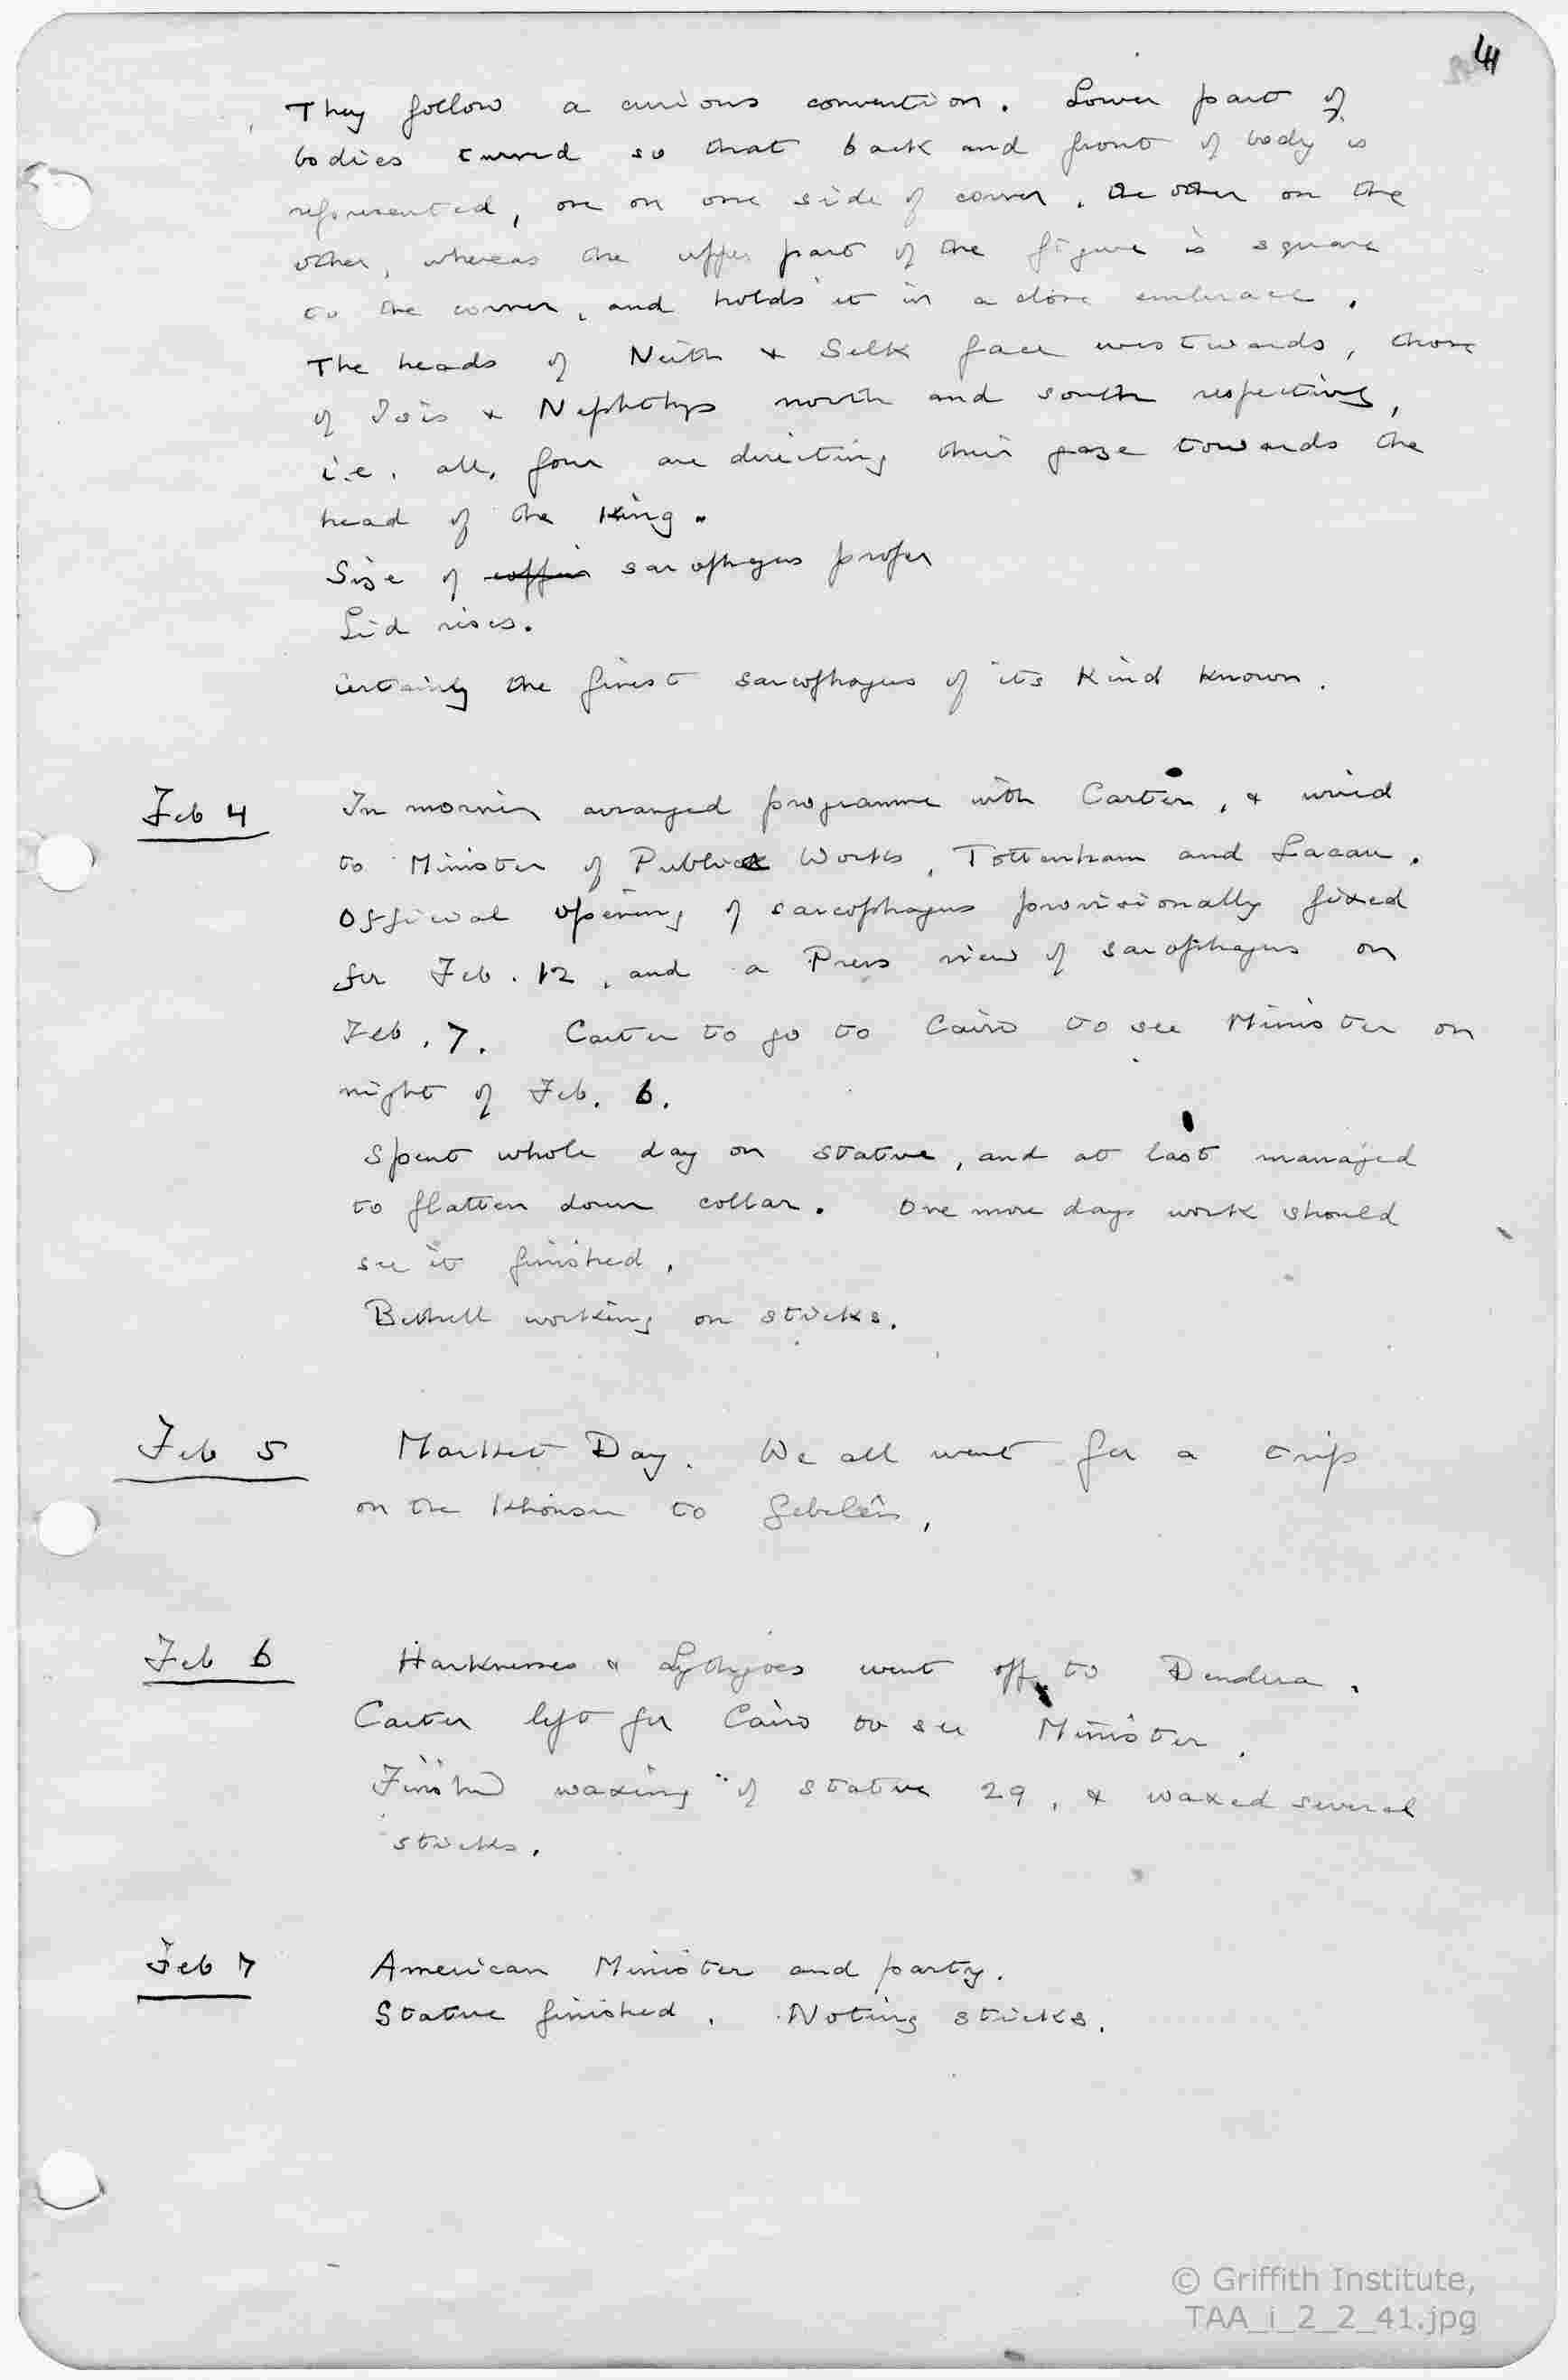 41
They follow a curious convention. Lower part of
bodies curved so that back and front of body is
represented, one on one side of corner, the other on the
other, whereas the upper part of the figure is square
to the corner, and holds it in a close embrace.
The heads of Neith & Selk face westwards, those
of Isis & Nephthys north and south respectively,
i.e. all four are directing their gaze towards the
head of the King.
Size of coffin sarcophagus proper
Lid rises.
Certainly the finest sarcophagus of its kind known.
Feb 4 In morning arranged programme with Carter, & wired
to Minister of Public Works, Tottenham and Lacau.
Official opening of sarcophagus provisionally fixed
for Feb. 12, and a Press view of sarcophagus on
Feb. 7. Carter to go to Cairo to see Minister on
night of Feb. 6.
Spent whole day on statue, and at last managed
to flatten down collar. One more days work should
see it finished.
Bethell working on sticks.
Feb 5 Market Day. We all went for a trip
on the Khonsu to Gebelên.
Feb 6 Harknesses & Lythgoes went off to Dendera.
Carter left for Cairo to see Minister.
Finished waxing of statue 29, & waxed several
sticks.
Feb 7 American Minister and party.
Statue finished. Noting sticks.
© Griffith Institute,
TAA_i_2_2_41.jpg